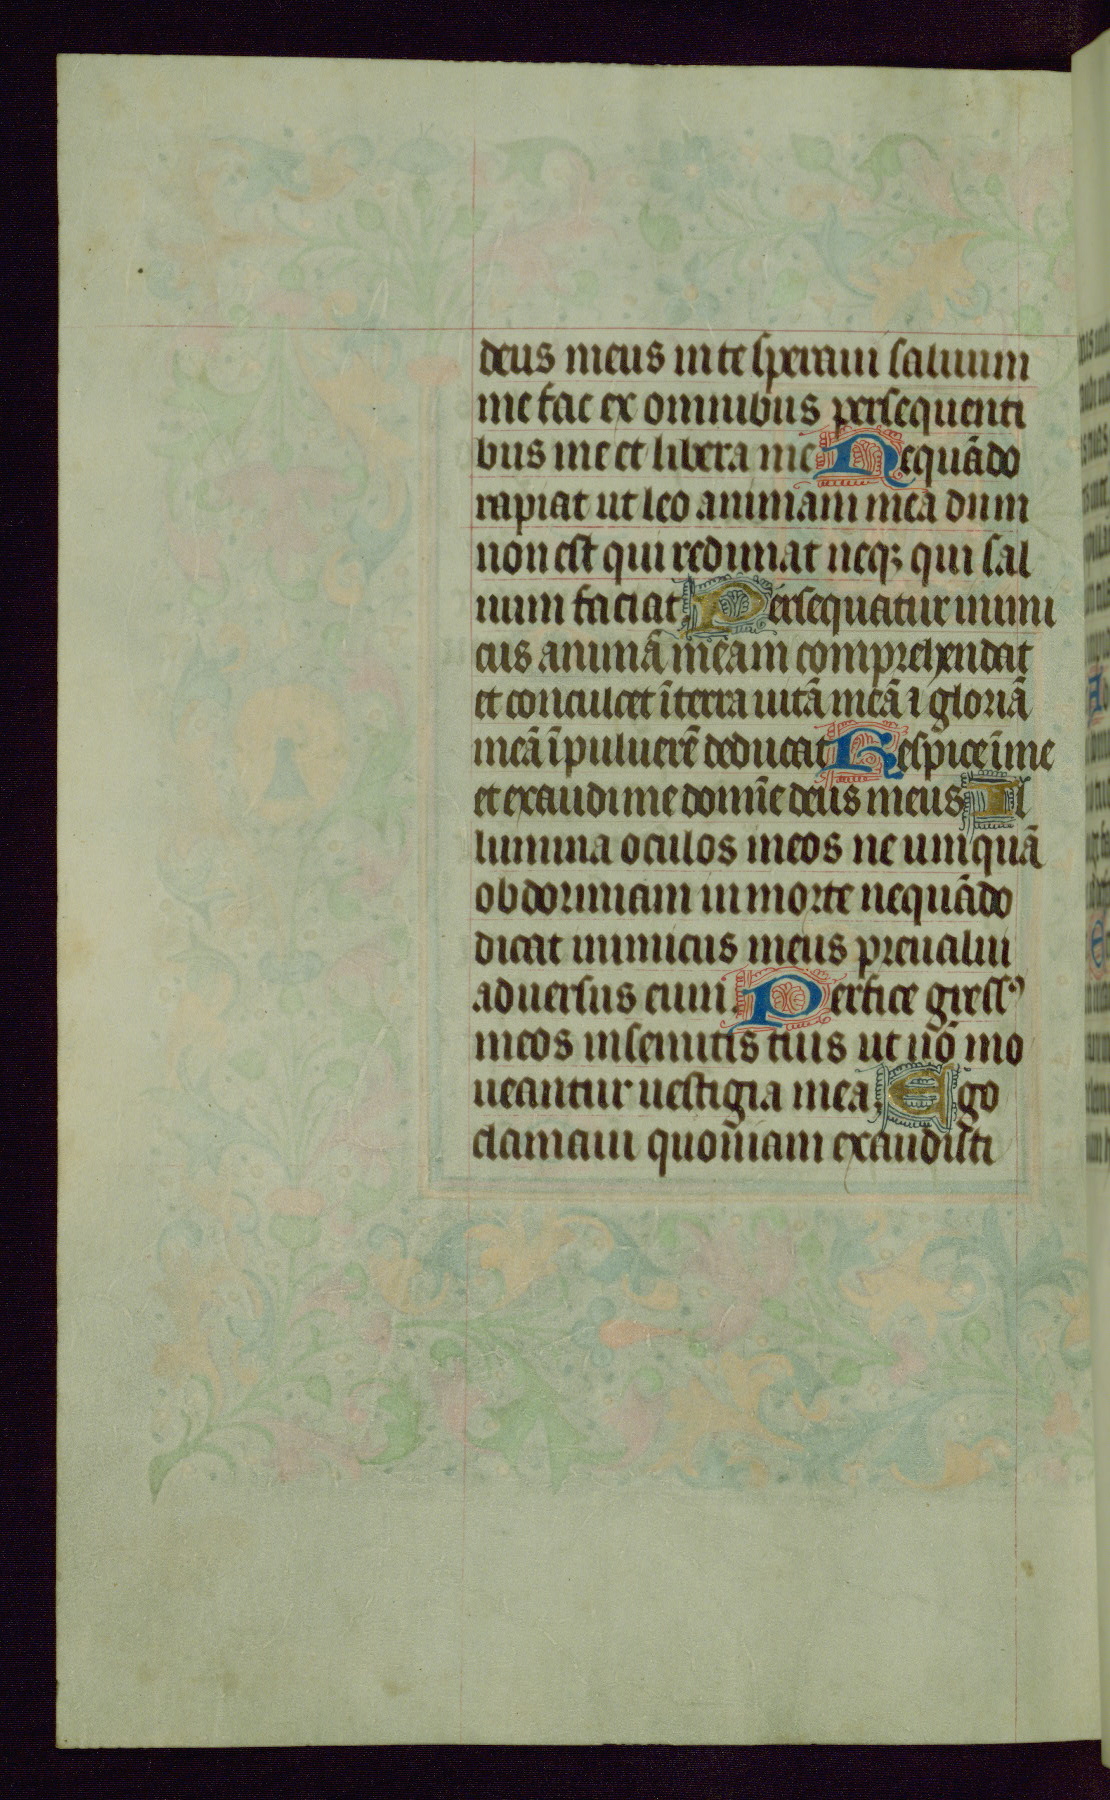 deus meus in te speraui saluum
me fac ex omnibus persequenti
bus me et libera me Nequādo
rapiat ut leo animam meā dum
non est qui redimat neqꝫ qui sal
uum faciat Persequatur inimi
cus animā meam comprehendat
et conculcet ī terra uitā meā ⁊ gloriā
meā ī puluerē deducat Respice ī me
et exaudi me domīe deus meus Il
lumina oculos meos ne umquā
obdormiam in morte nequādo
dicat inimicus meus preualui
aduersus eum. Perfice gressꝰ
meos in semitis tuis ut nō mo
ueantur uestigia mea. Ego
clamaui quoniam exaudisti